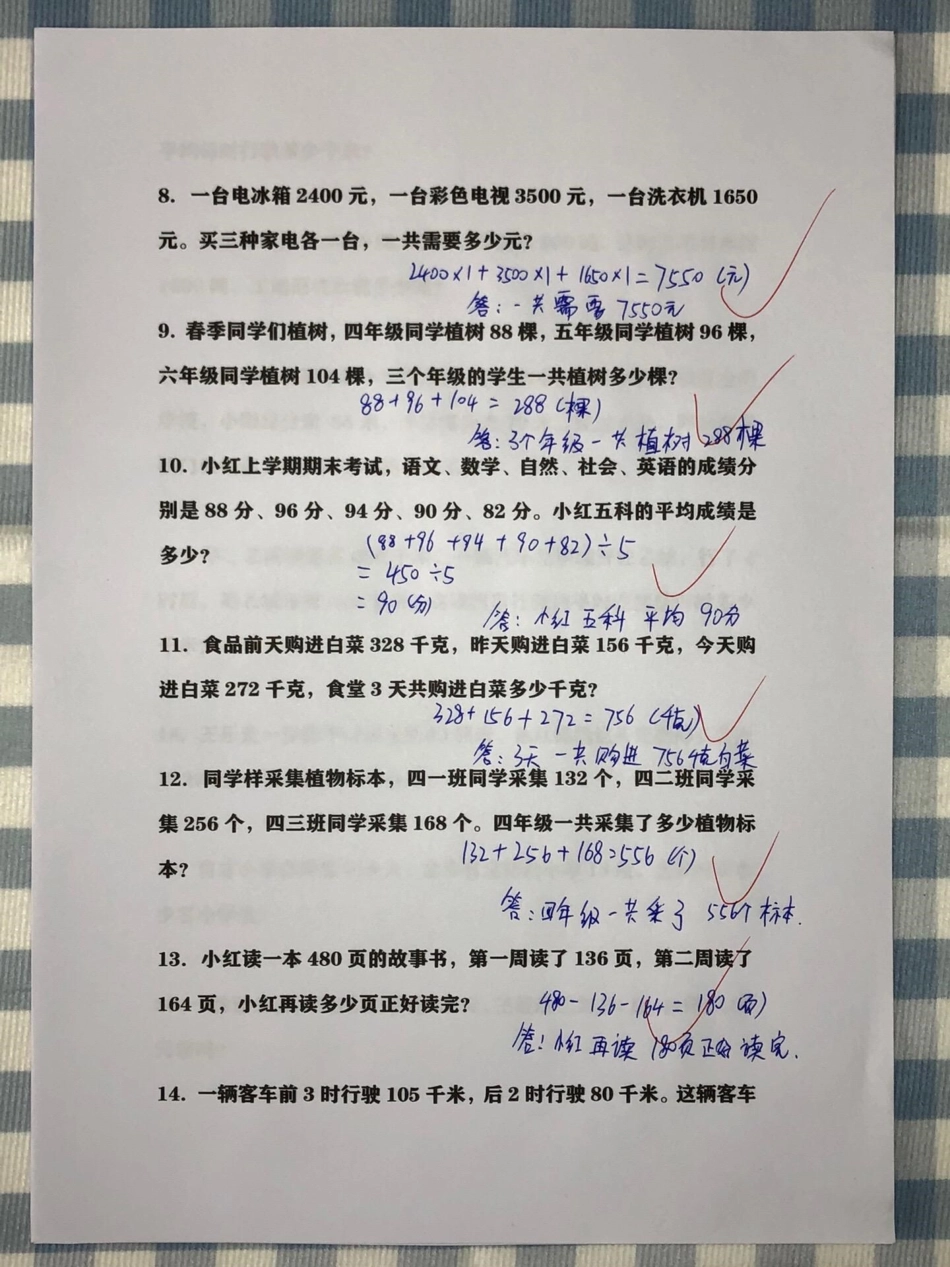 8. 一台电冰箱 2400 元，一台彩色电视 3500 元，一台洗衣机 1650
元。买三种家电各一台，一共需要多少元?
2400×1+3500×1+1650×1=7550 (元)
答: 一共需要 7550元
9. 春季同学们植树，四年级同学植树 88 棵，五年级同学植树 96 棵，
六年级同学植树 104 棵，三个年级的学生一共植树多少棵?
88+96+104 = 288 (棵)
答: 3个年级一共植树 288棵
10. 小红上学期期末考试，语文、数学、自然、社会、英语的成绩分
别是 88 分、96 分、94 分、90 分、82 分。小红五科的平均成绩是
多少?
(88+96+94+90+82)÷5
= 450÷5
= 90 (分)
答: 小红五科平均 90分
11. 食品前天购进白菜 328 千克，昨天购进白菜 156 千克，今天购
进白菜 272 千克，食堂 3 天共购进白菜多少千克?
328+156+272 = 756 (千克)
答: 3天一共购进 756千克白菜
12. 同学样采集植物标本，四一班同学采集 132 个，四二班同学采
集 256 个，四三班同学采集 168 个。四年级一共采集了多少植物标
本?
132+256+168=556 (个)
答: 四年级一共采了 556个标本.
13. 小红读一本 480 页的故事书，第一周读了 136 页，第二周读了
164 页，小红再读多少页正好读完?
480-136-164 = 180 (页)
答: 小红再读 180页正好读完.
14. 一辆客车前 3 时行驶 105 千米，后 2 时行驶 80 千米。这辆客车